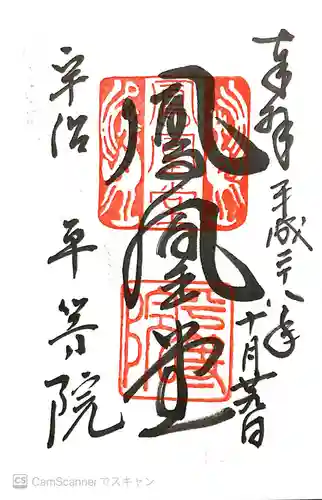 奉拝
平成二十八年
十月廿九日
鳳凰堂
宇治 平等院
CS CamScannerでスキャン